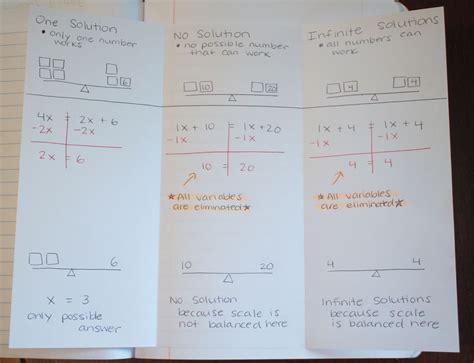 One Solution
• only one number
works
6
4x = 2x + 6
-2x -2x
2x = 6
6
x = 3
only possible
answer
No Solution
• no possible number
that can work
10 20
1x + 10 = 1x + 20
-1x -1x
10 = 20
*All variables
are eliminated*
10 20
No Solution
because scale is
not balanced here
Infinite Solutions
• all numbers can
work
4 4
1x + 4 = 1x + 4
-1x -1x
4 = 4
*All variables
are eliminated*
4 4
Infinite Solutions
because scale
is balanced here